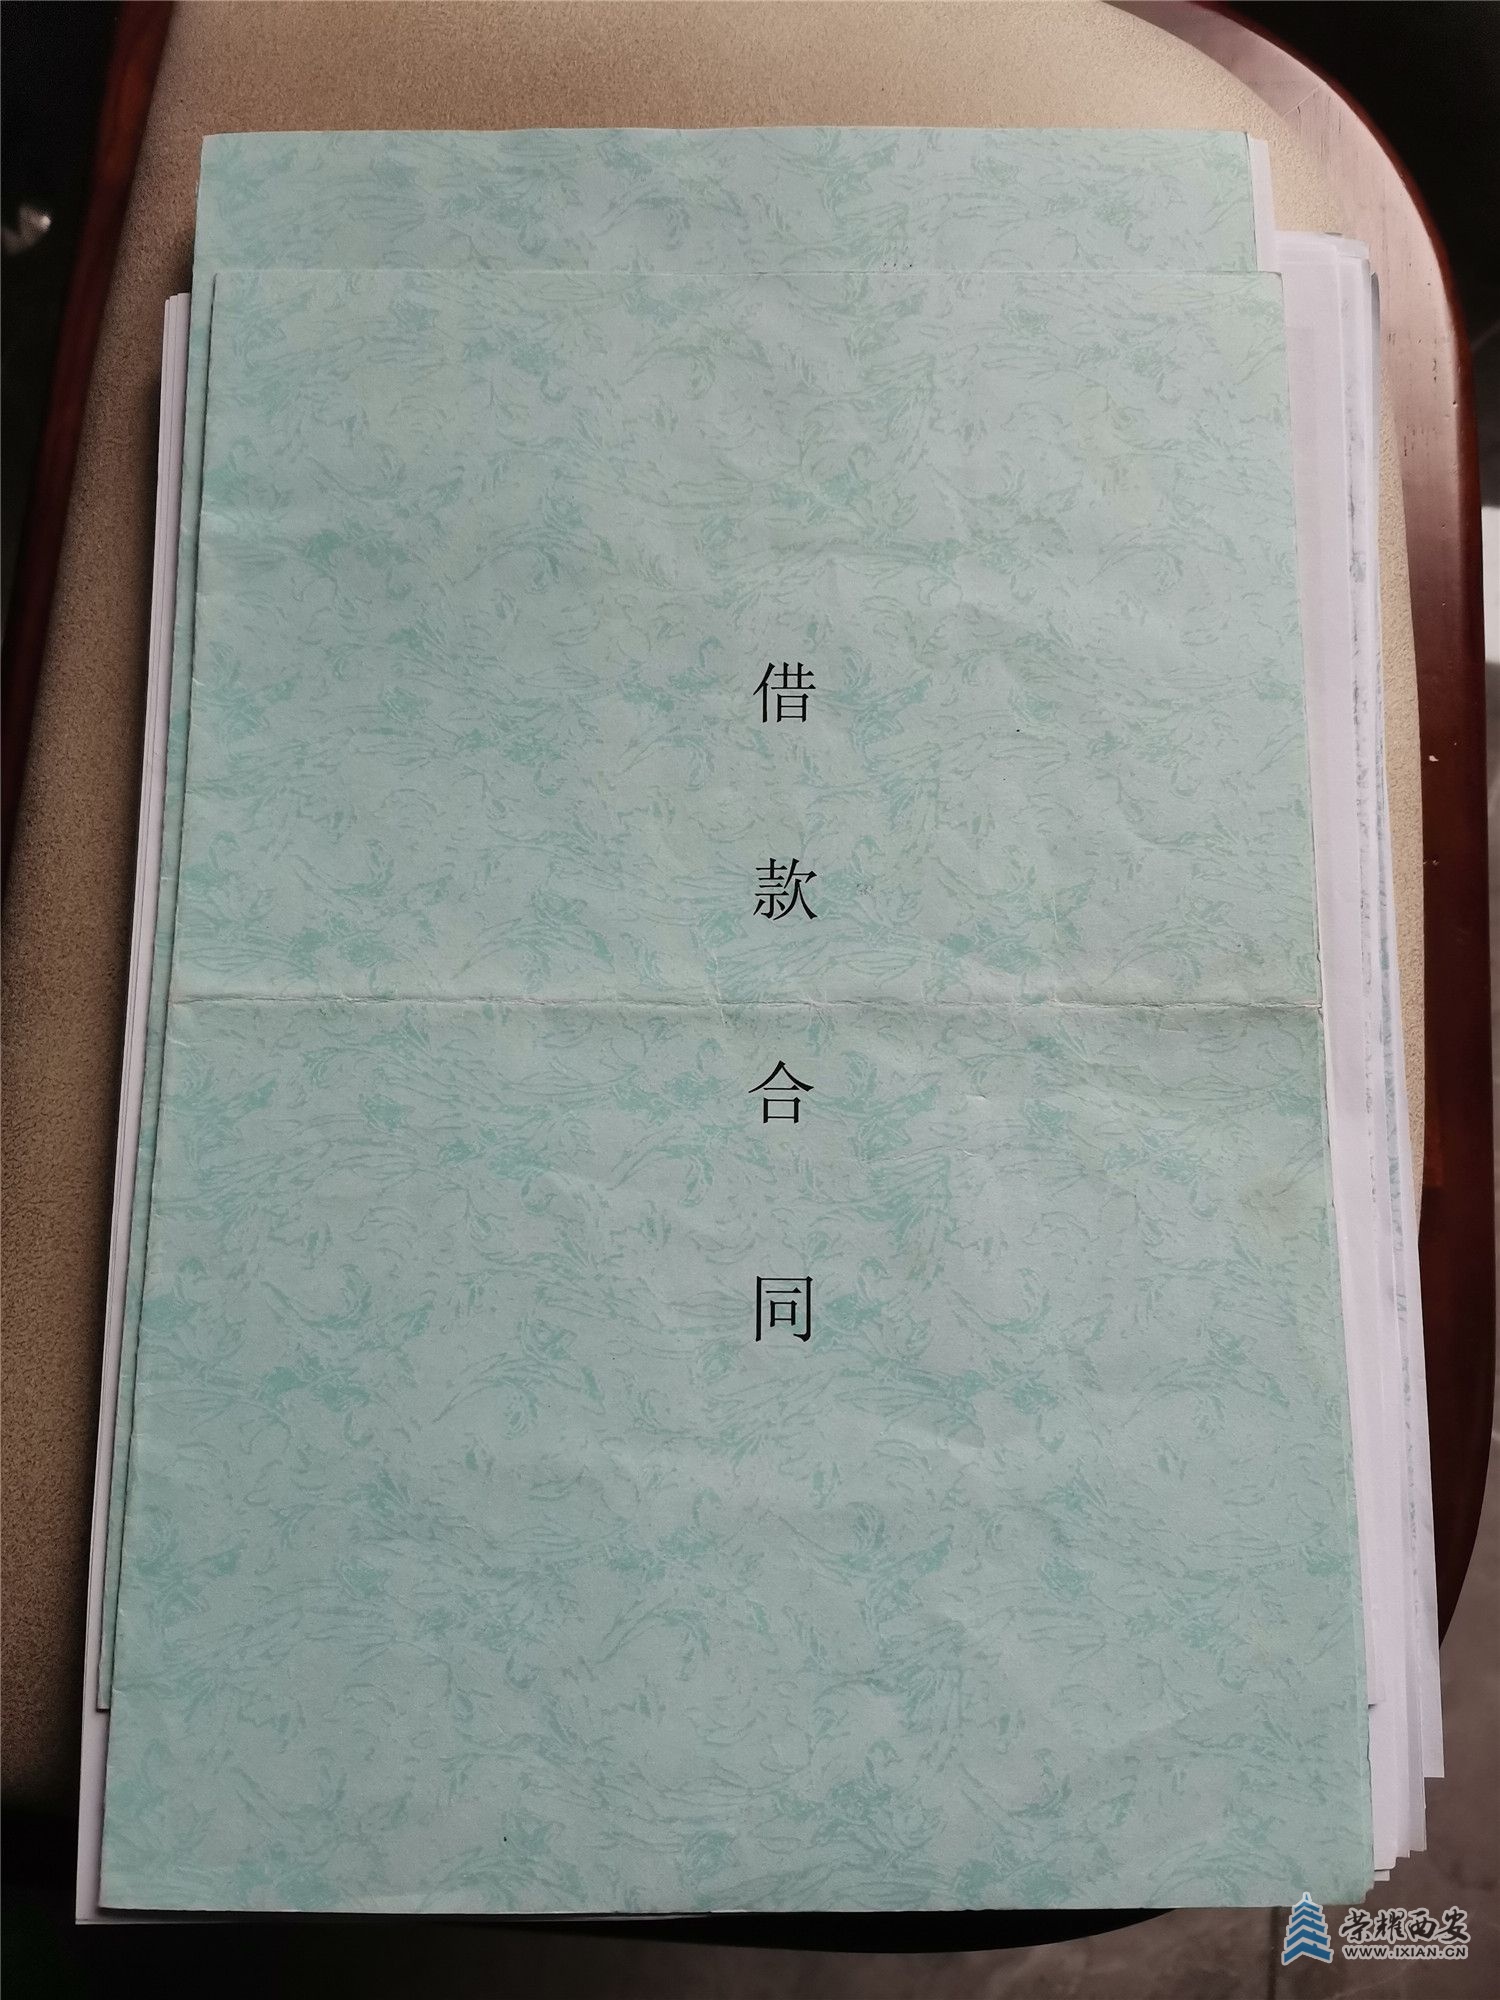 借
款
合
同
荣耀西安
WWW.IXIAN.CN